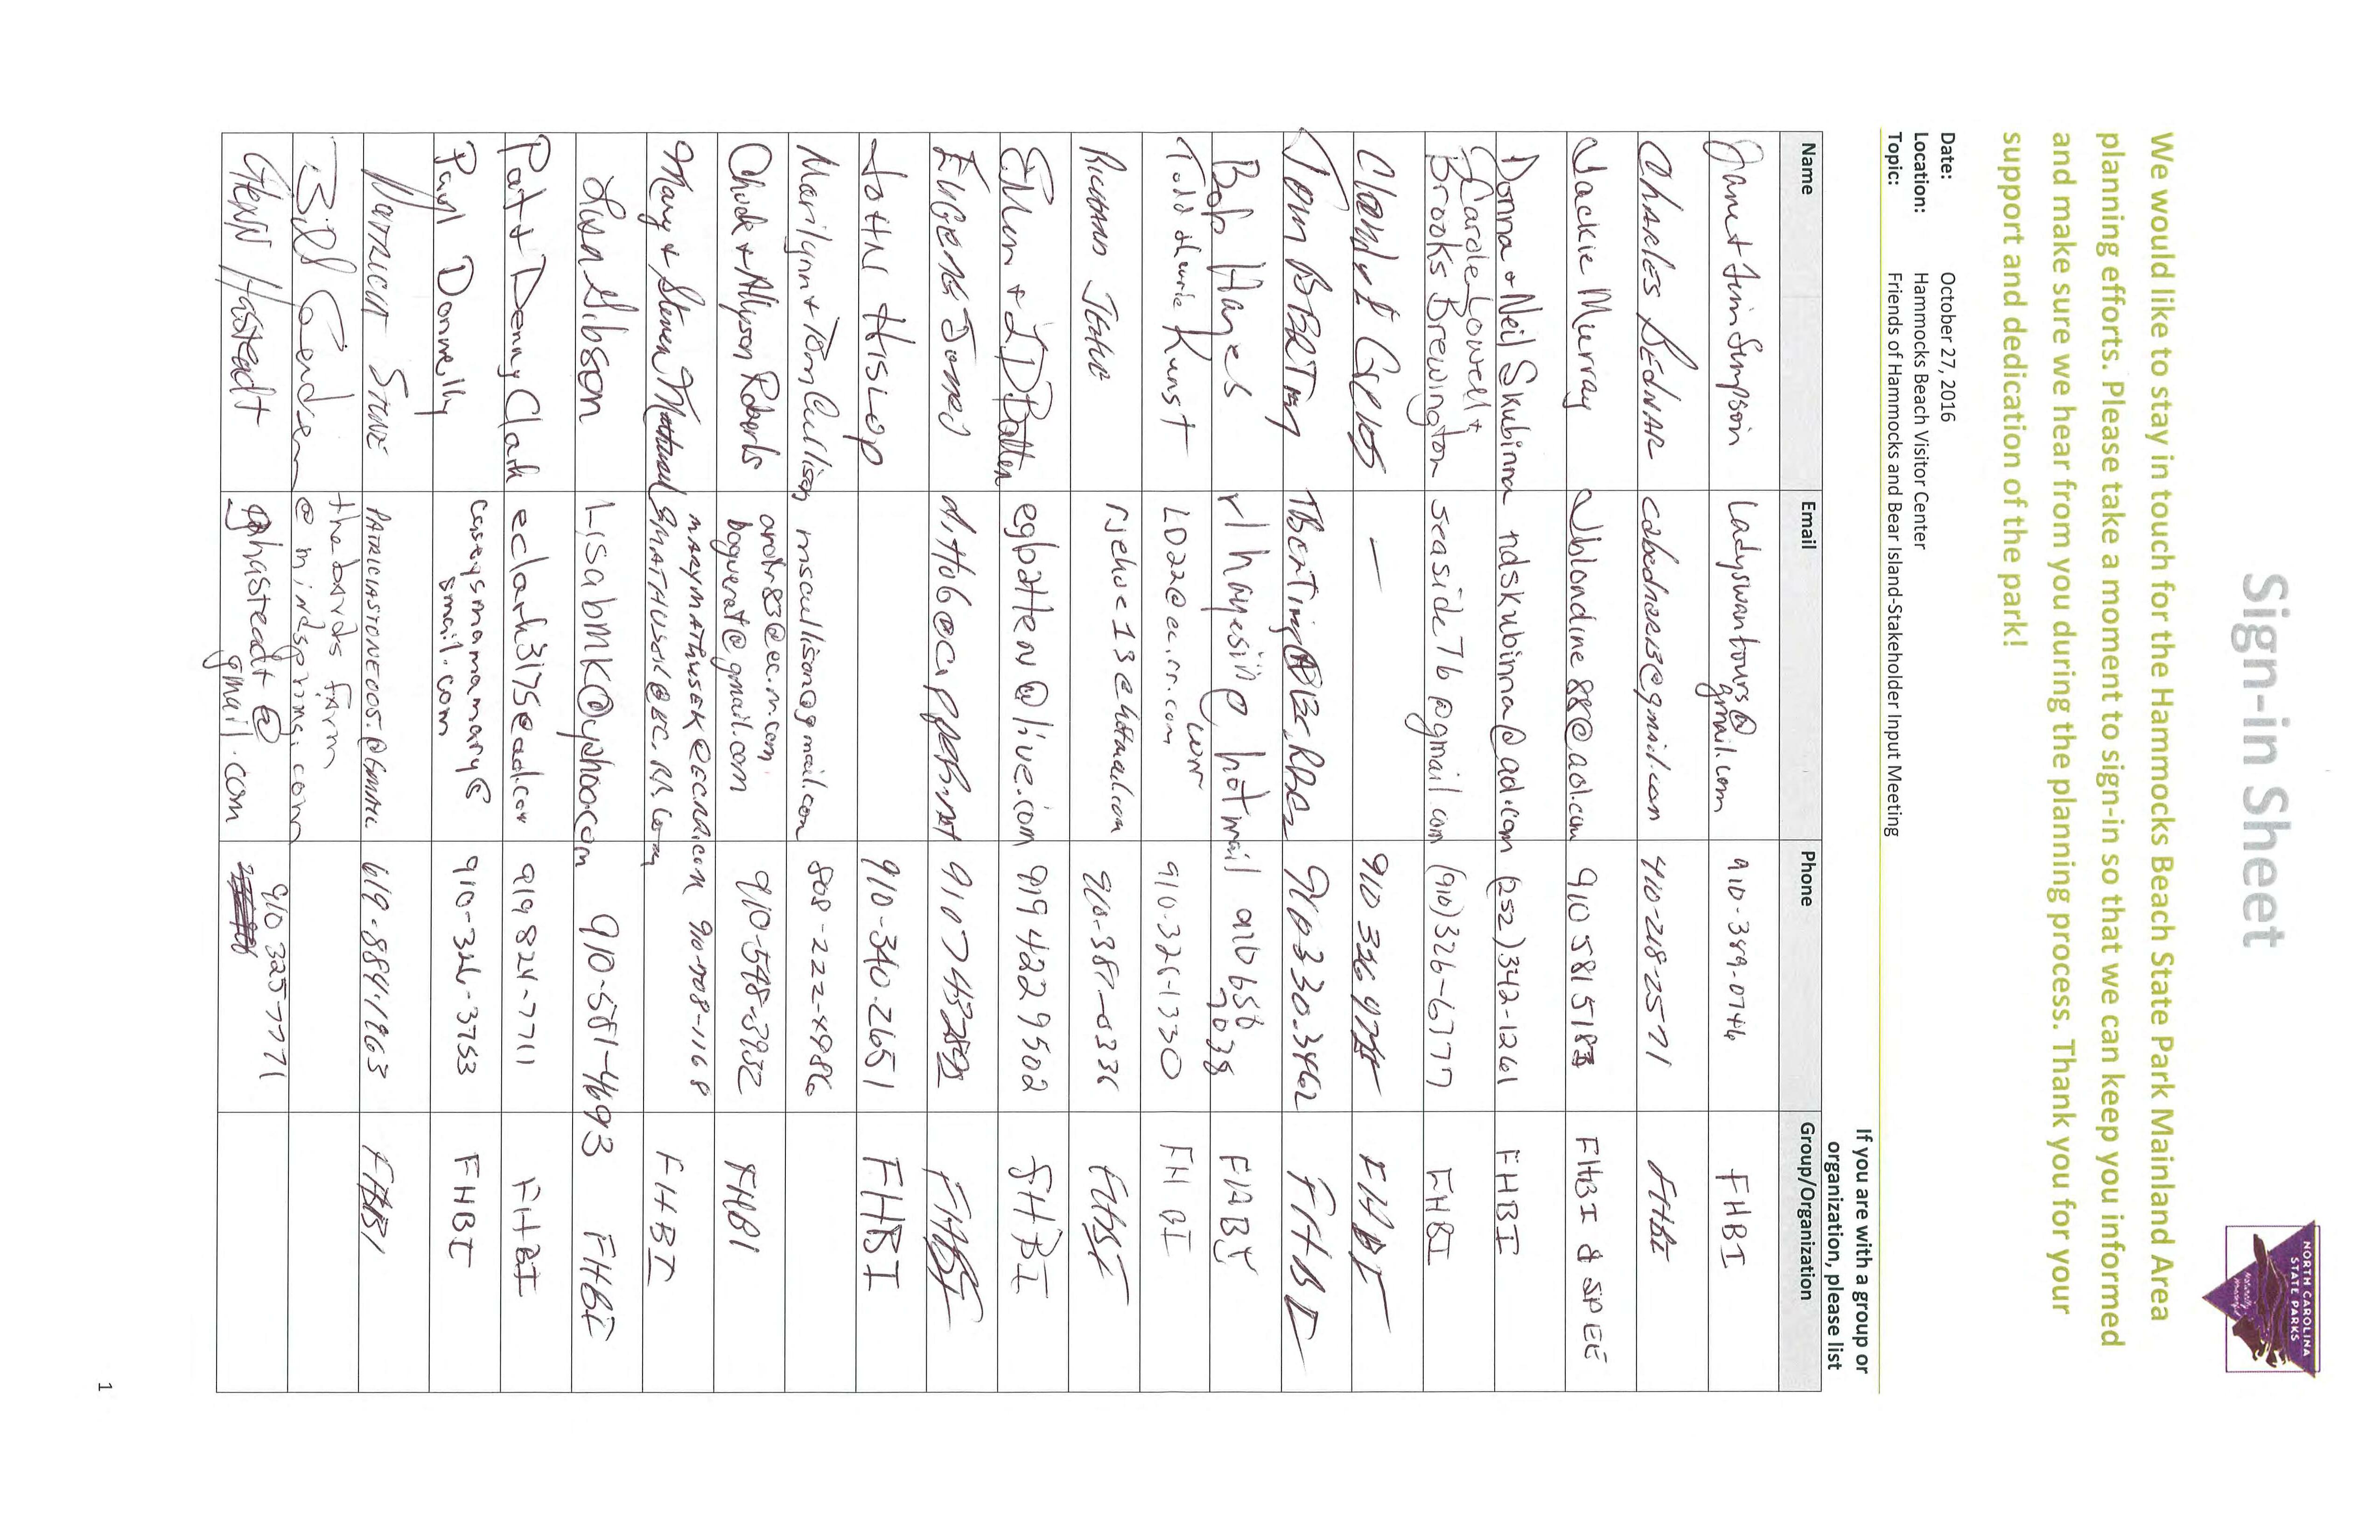 Sign-in Sheet
NORTH CAROLINA
STATE PARKS
Naturally
Wonderful
We would like to stay in touch for the Hammocks Beach State Park Mainland Area
planning efforts. Please take a moment to sign-in so that we can keep you informed
and make sure we hear from you during the planning process. Thank you for your
support and dedication of the park!
Date: October 27, 2016
Location: Hammocks Beach Visitor Center
Topic: Friends of Hammocks and Bear Island-Stakeholder Input Meeting
If you are with a group or
organization, please list
Name Email Phone Group/Organization
Janet & Jim Simpson Ladyswantours@ gmail.com 910-389-0746 FHBI
Charles Bednar cabednar53@gmail.com 410-218-2571 FHBI
Jackie Murray Jblondine88@aol.com 910 581 5188 FHBI & SPEE
Donna & Neil Skubinna ndskubinna@aol.com (252)342-1261 FHBI
Carole Lowell &
Brooks Brewington seaside76@gmail.com (910)326-6777 FHBI
Claude — 910 326 FHBI
Tom FHBI
Bob Hayes rlhayesin@hotmail.com 910 650 9038
Todd Kunst LD22@ec.rr.com 910-326-1330 FHBI
Richard FHBI
& JD Batten egbatten@live.com 919 422 9502 FHBI
Eugene Jones 910 743 FHBI
John Hislop 910-340-2651 FHBI
Marilynn & Tom Cullison mscullison@gmail.com 808-222-4986
Chuck & Allyson Roberts ardtr83@ec.rr.com
boguerat@gmail.com 910-548-3932 FHBI
Mary & Steven 910-708-1168 FHBI
Lisa Gibson Lisabmk@yahoo.com 910-581-4693 FHBI
Pat & Denny Clark eclark3175@aol.com 919 824-7711 FHBI
Paul Donnelly caseysmamamary@
gmail.com 910-326-3753 FHBI
Patricia Stone PATRICIASTONE005.@GMAIL 619-884-1963 FHBI
Bill thebards farm
@mindspring.com
Glenn Hastedt ghastedt@
gmail.com 910 325-7771
1